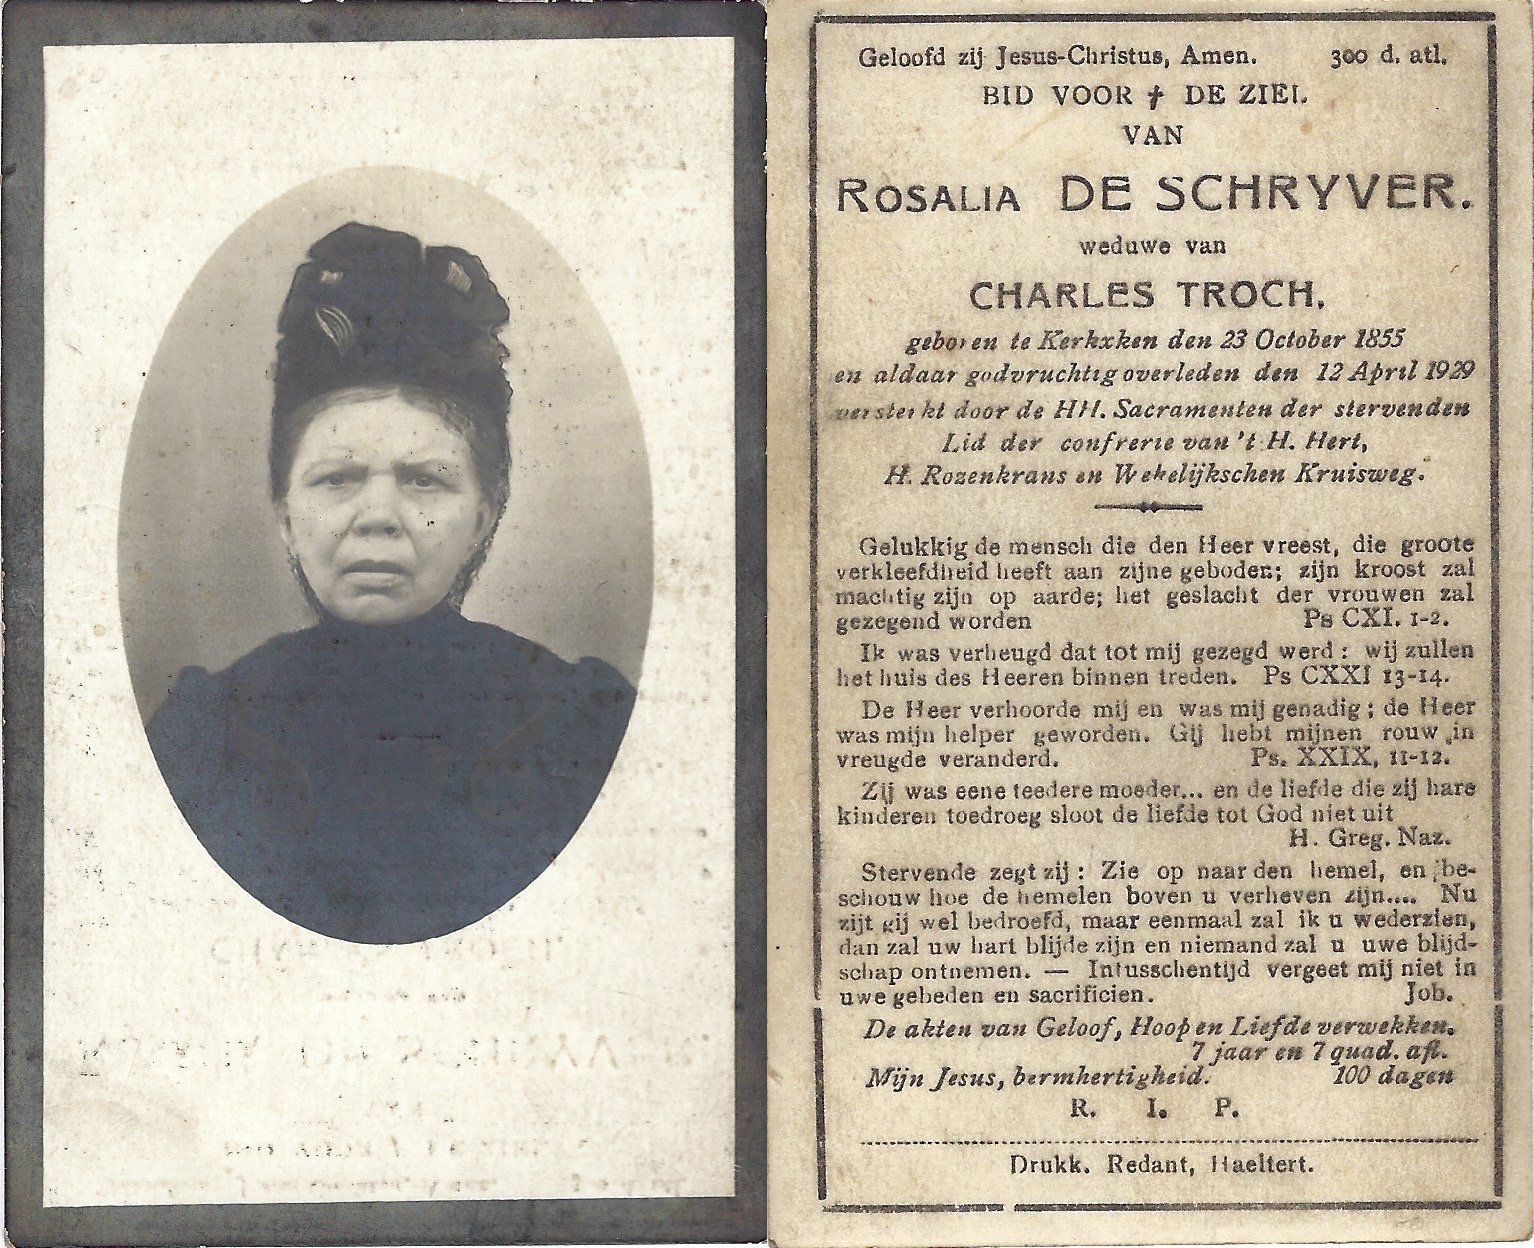 Geloofd zij Jesus-Christus, Amen. 300 d. atl.
BID VOOR † DE ZIEL
VAN
ROSALIA DE SCHRYVER.
weduwe van
CHARLES TROCH.
geboren te Kerkxken den 23 October 1855
en aldaar godvruchtig overleden den 12 April 1929
versterkt door de HH. Sacramenten der stervenden
Lid der confrerie van 't H. Hert,
H. Rozenkrans en Wekelijkschen Kruisweg.
Gelukkig de mensch die den Heer vreest, die groote
verkleefdheid heeft aan zijne geboden; zijn kroost zal
machtig zijn op aarde; het geslacht der vrouwen zal
gezegend worden Ps CXI. 1-2.
Ik was verheugd dat tot mij gezegd werd : wij zullen
het huis des Heeren binnen treden. Ps CXXI 13-14.
De Heer verhoorde mij en was mij genadig; de Heer
was mijn helper geworden. Gij hebt mijnen rouw in
vreugde veranderd. Ps. XXIX, 11-12.
Zij was eene teedere moeder... en de liefde die zij hare
kinderen toedroeg sloot de liefde tot God niet uit
H. Greg. Naz.
Stervende zegt zij : Zie op naar den hemel, en be-
schouw hoe de hemelen boven u verheven zijn.... Nu
zijt gij wel bedroefd, maar eenmaal zal ik u wederzien,
dan zal uw hart blijde zijn en niemand zal u uwe blijd-
schap ontnemen. — Intusschentijd vergeet mij niet in
uwe gebeden en sacrificien. Job.
De akten van Geloof, Hoop en Liefde verwekken.
7 jaar en 7 quad. afl.
Mijn Jesus, bermhertigheid. 100 dagen
R. I. P.
Drukk. Redant, Haeltert.